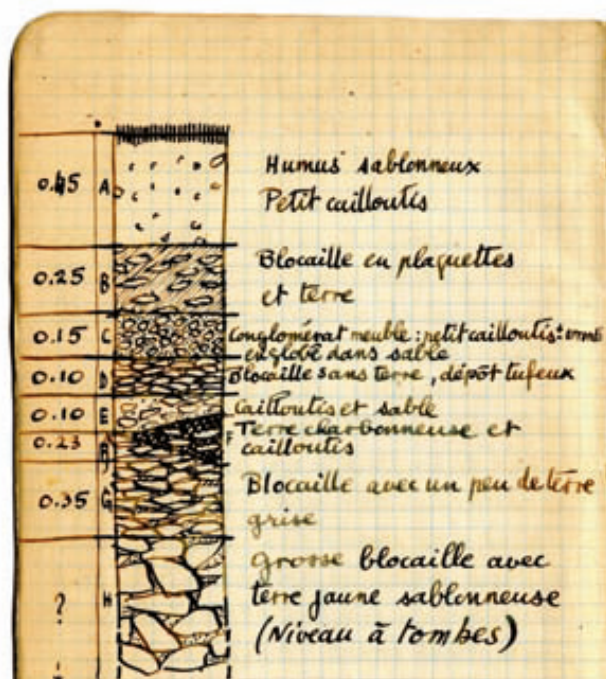 0.45 A Humus sablonneux
Petit cailloutis
0.25 B Blocaille en plaquettes
et terre
0.15 C Conglomérat meuble : petit cailloutis ±
englobé dans sable
0.10 D Blocaille sans terre, dépôt tufeux
0.10 E Cailloutis et sable
0.23 F Terre charbonneuse et
cailloutis
0.35 G Blocaille avec un peu de terre
grise
? H grosse blocaille avec
terre jaune sablonneuse
(Niveau à tombes)